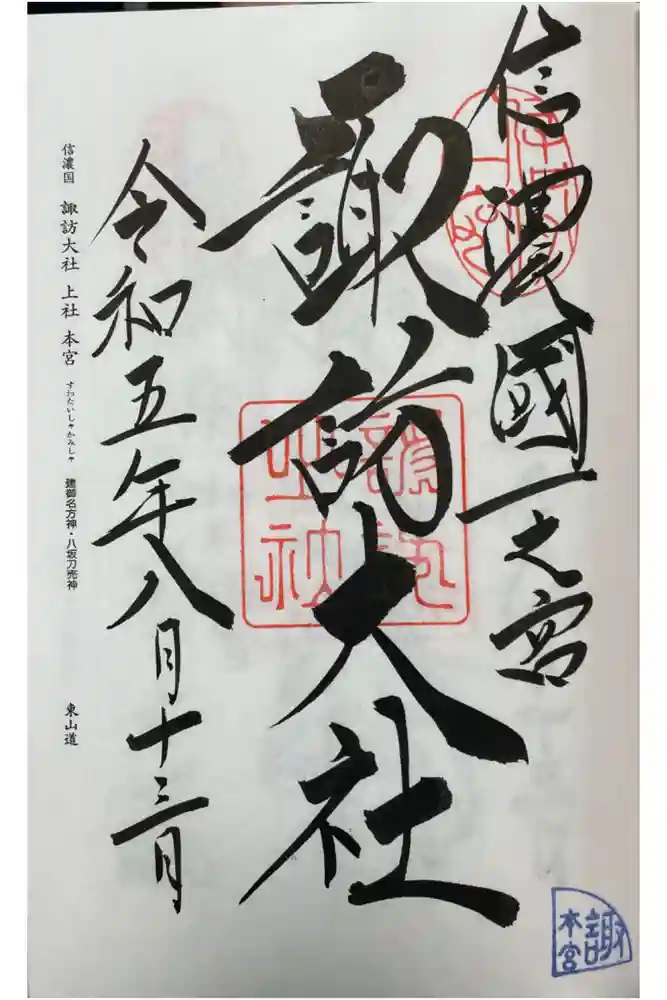 信濃國一之宮
諏訪大社
令和五年八月十三日
信濃国 諏訪大社 上社 本宮 すわたいしゃかみしゃ 建御名方神・八坂刀売神 東山道
諏訪
大社
諏
本宮